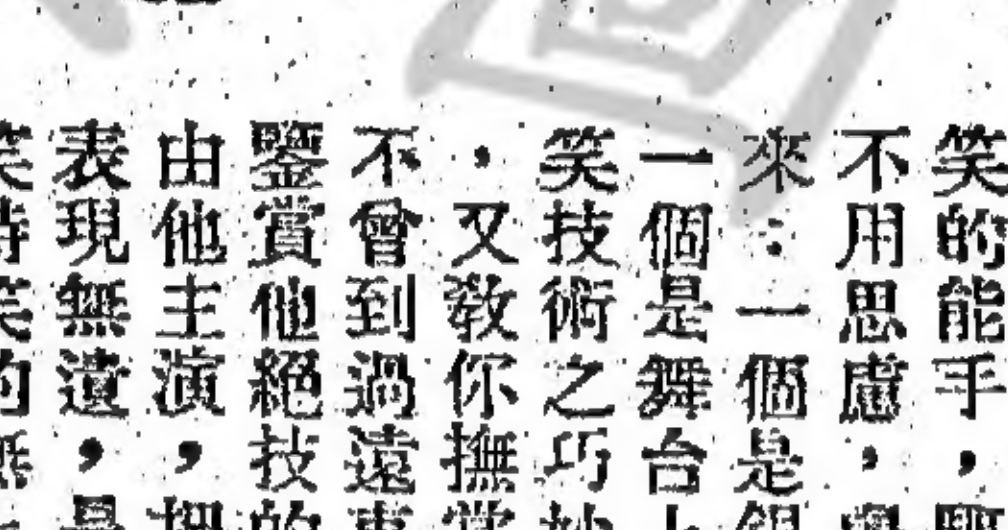 笑的能手，
不用思慮，
來：一個是
一個是舞台
笑技術之巧
，又敎你撫掌
不曾到過遠東
鑒賞他絕技的
由他主演，
表現無遺，是